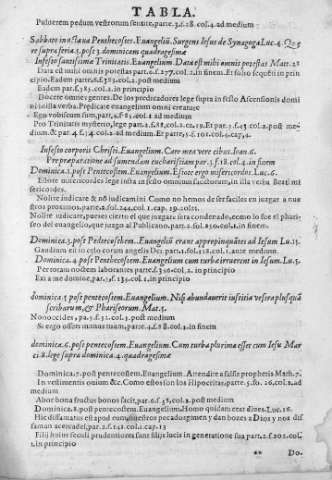 TABLA.
Puluerem pedum vestrorum sentite, parte. 3. f. 28. col. 4. ad medium
Sabbato infestaua Pentecostes. Euangeliũ. Surgens Iesus de Synagoga Luc. 4. Qęre supra feria. 5. post 3. dominicam quadragesimæ
In festo sanctissimæ Trinitatis. Euangelium. Data est mihi omnis potestas Matt. 28
Data est mihi omnis potestas part. 2. f. 277. col. 2. in finem. Et fulso principio. Eadem parte. f. col. 2. post medium
Eadem f. 283. col. 2. in principio
Docete omnes gentes. De los predicadores lege supra in festo Ascensionis domini illa verba. Predicate Euangelium omni creaturæ
Ego vobiscum sum, part. 2. f. 62. col. 2 ad medium
Pro Trinitatis mysterio, lege part. 2. f. 218. col. 2. ca. 19. Et par. 3. f. 45. col. 2. post medium, & par. 4. f. 14. col. 2. ad medium. Et parte, 5. f. 101. col. 4. cap. 4.
In festo corporis Christi. Euangelium. Caro mea vere cibus. Ioan. 6.
Pro præparatione ad sumendam eucharistiam par. 3. f. 18. col. 4. in finem
Dominica. 1. post Pentecostem. Euangelium. Estote ergo misericordes Luc. 6.
Estote misericordes lege infra in festo omnium sanctorum, in illa verba Beati misericordes.
Nolite indicare & nõ iudicamini. Como no hemos de ser faciles en juzgar a nuestros proximos, parte. 2. fol. 202. col. 1. cap. 29. col. 1.
Nolite iudicare, pues es cierto el que juzgare sera condenado, como lo fue el phariseo del euangelio, que juzgo al Publicano, part. 2. fol. 250. col. 1. in finem
Dominica. 3. post Pentecostem. Euangeliũ erant appropinquãtes ad Iesum Lu. 15.
Gaudium est in cœlo coram angelis Dei. par. 2. fol. 128. col. 1. ante medium
Dominica. 4. post Pentecostem. Euangelium cum turbæ irruerent in Iesum Lu. 5.
Per totam noctem laborantes parte. f. 350. col. 2. in principio
Exi a me domine, par. 3. f. 135. col. 1. in principio
dominica. 5 post pentecostem. Euangelium. Nisi abundauerit iustitia vestra plusquã scribarum, & Phariseorum. Mat. 5.
Non occides, pa. 5. f. 31. col. 2. post medium
Si ergo offers munus tuum, parte. 4. f. 88. col. 2. in finem
dominica. 6. post pentecostem. Euangelium. Cum turba plurima esset cum Iesu Marci 8. lege supra dominica. 4. quadragesimæ
Dominica. 7. post pentecostem. Euangelium. Attendite a falsis prophetis Math. 7.
In vestimentis ouium &c. Como estos son los Hipocritas, parte. 5. fo. 16. col. 2. ad medium
Abor bona fructus bonos facit, par. 6. f. 38. col. 2. post medium
Dominica. 8. post pentecostem. Euangelium. Homo quidam erat diues. Luc. 16.
Hic diffamatus est apud como nuestros pecados gimen y dan bozes a Dios y nos difaman acerca del, par. 2. f. 141. col. 1. cap. 13
Filij huius seculi prudentiores sunt filijs lucis in generatione sua part. 2. f. 202. col. 2. in principio
** Do.